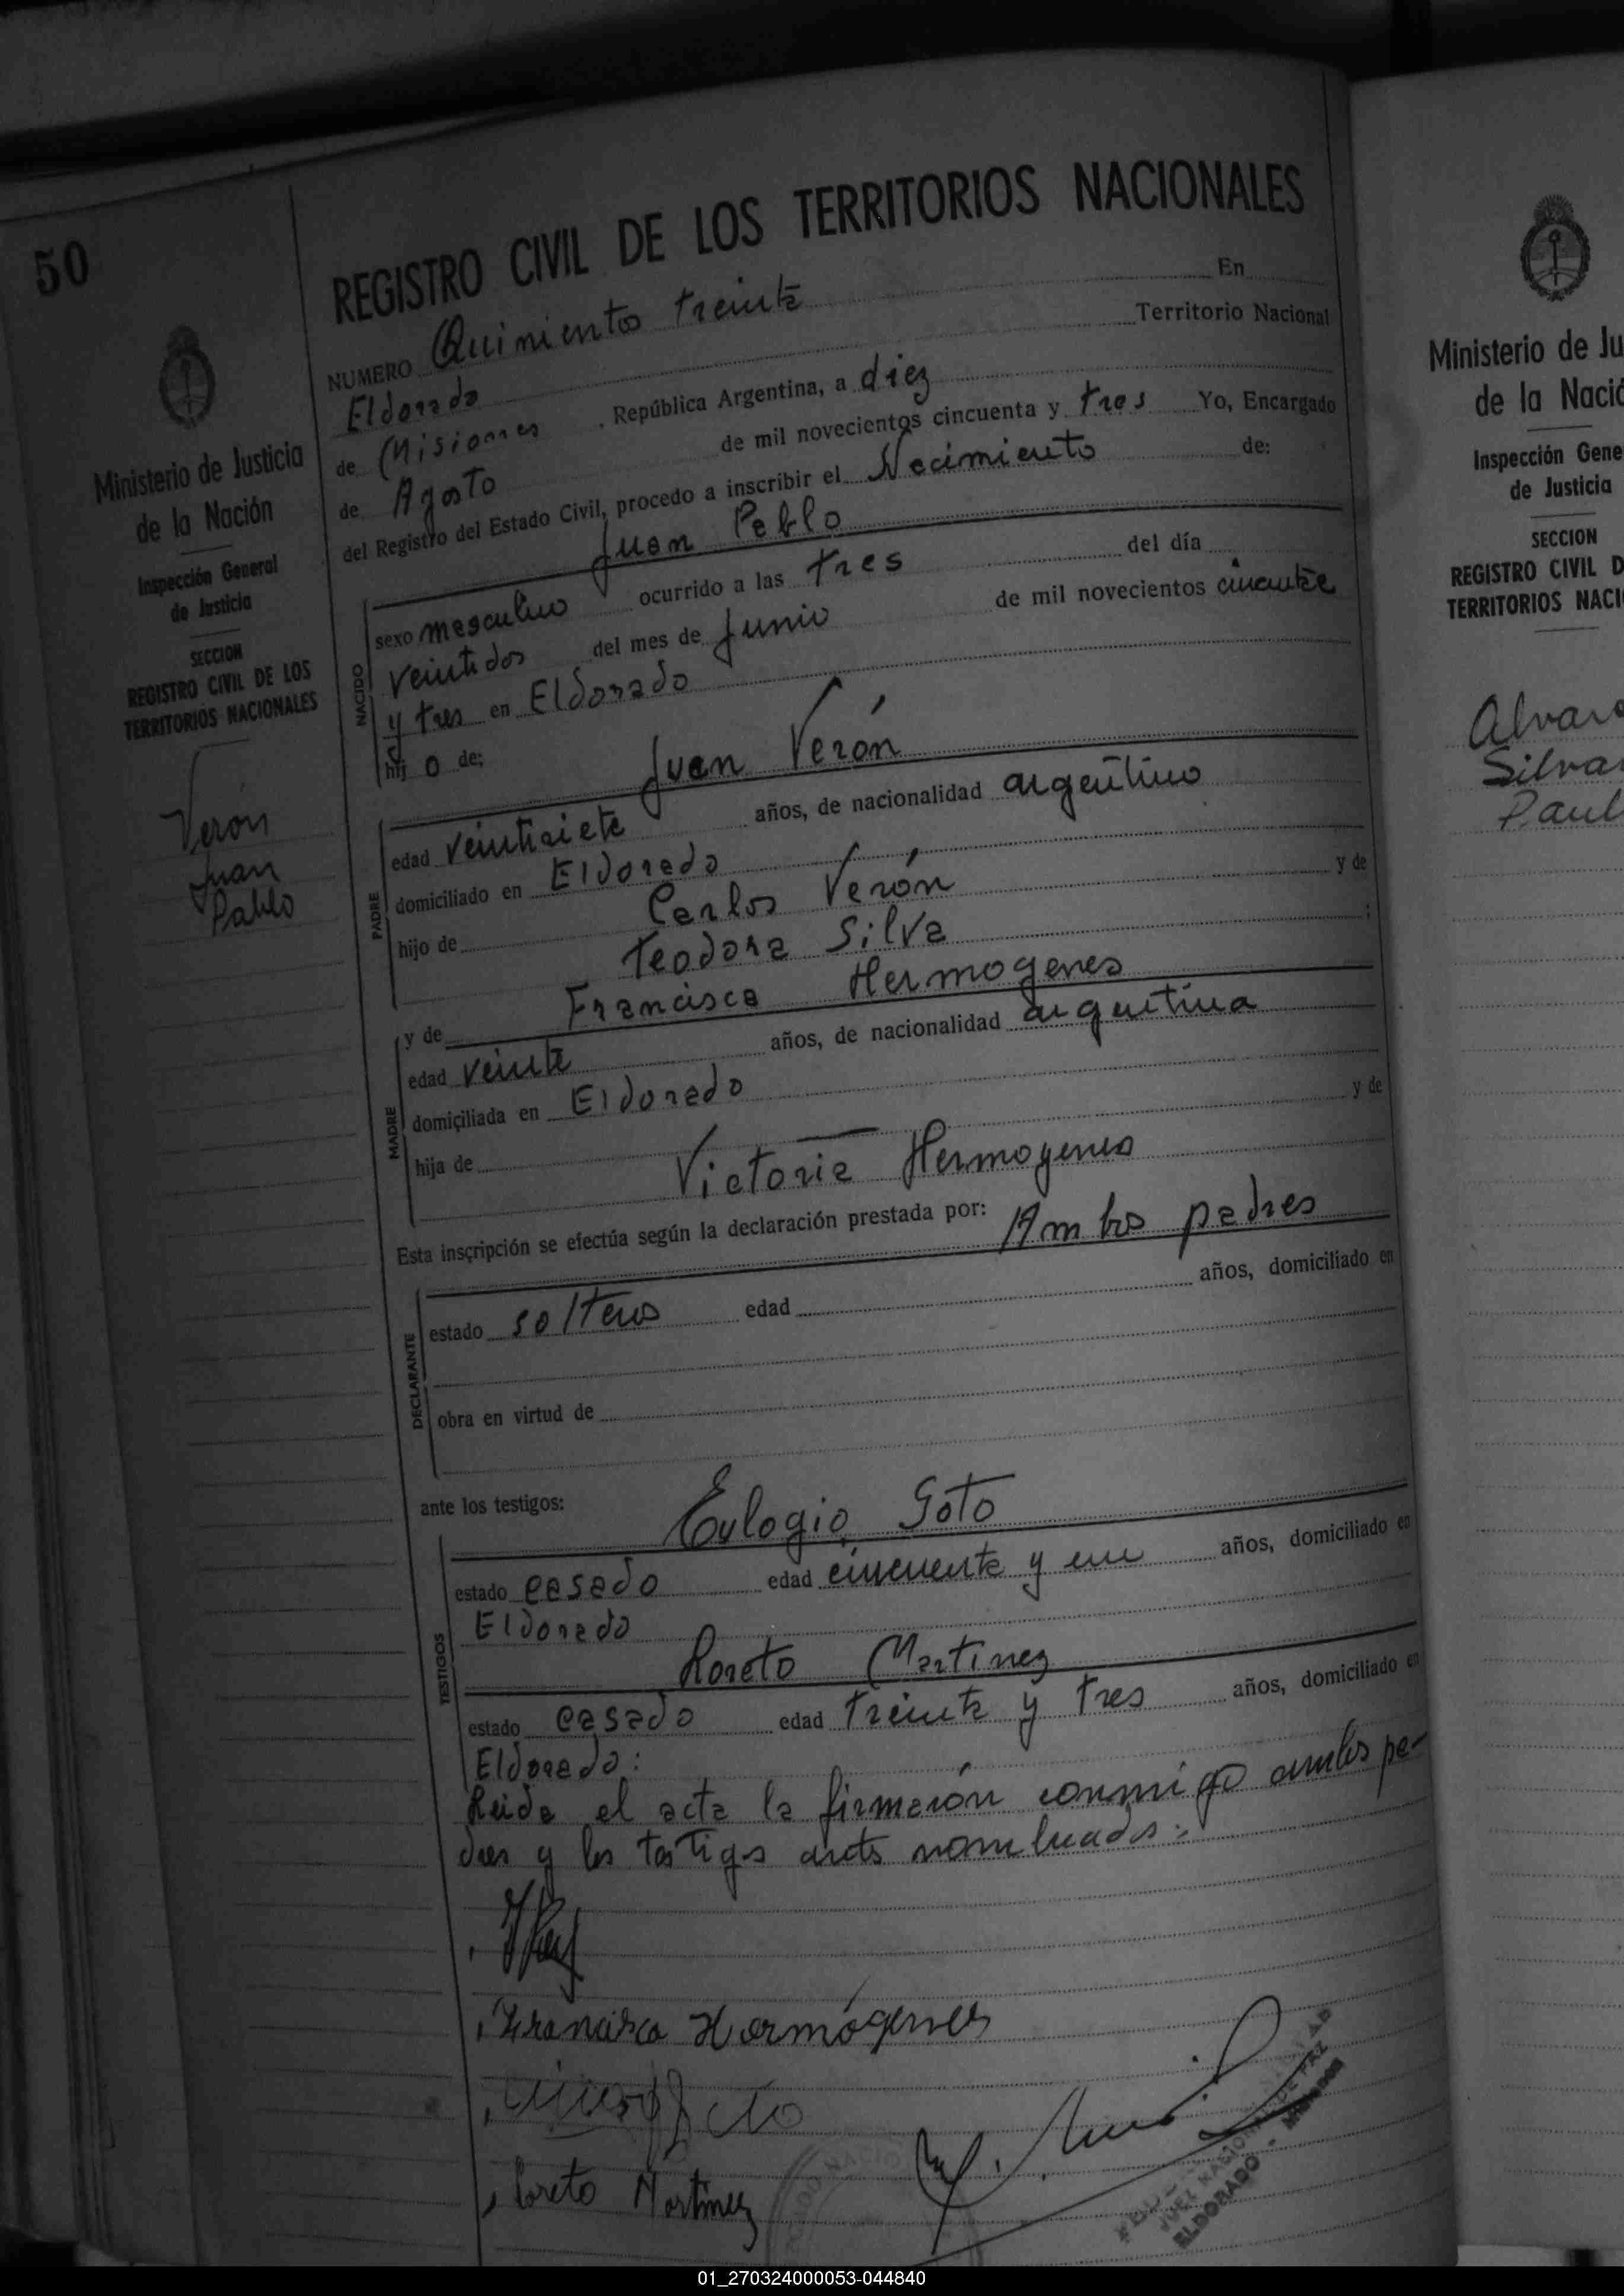 50
Ministerio de Justicia
de la Nación
Inspección General
de Justicia
SECCION
REGISTRO CIVIL DE LOS
TERRITORIOS NACIONALES
Verón
Juan
Pablo
REGISTRO CIVIL DE LOS TERRITORIOS NACIONALES
NUMERO Quinientos treinta En
Eldorado Territorio Nacional
de Misiones, República Argentina, a diez
de Agosto de mil novecientos cincuenta y tres Yo, Encargado
del Registro del Estado Civil, procedo a inscribir el Nacimiento de:
Juan Pablo
NACIDO
sexo masculino ocurrido a las tres del día
veintidos del mes de Junio de mil novecientos cincuenta
y tres en Eldorado
hij o de:
Juan Verón
PADRE
edad veintisiete años, de nacionalidad argentino
domiciliado en Eldorado
hijo de Carlos Verón y de
Teodora Silva ;
y de Francisca Hermogenes
MADRE
edad veinte años, de nacionalidad argentina
domiciliada en Eldorado
hija de — y de
Victoria Hermogenes
Esta inscripción se efectúa según la declaración prestada por: Ambos padres
DECLARANTE
estado solteros edad años, domiciliado en
obra en virtud de
ante los testigos:
Eulogio Soto
TESTIGOS
estado casado edad cincuenta y un años, domiciliado en
Eldorado
Loreto Martinez
estado casado edad treinta y tres años, domiciliado en
Eldorado:
Leida el acta la firmarón conmigo ambos pa-
dres y los testigos antes nombrados:
Francisca Hermógenes
Loreto Martinez
JUEZ NACIONAL DE PAZ
ELDORADO - MISIONES
Ministerio de Ju
de la Nació
Inspección Gene
de Justicia
SECCION
REGISTRO CIVIL D
TERRITORIOS NACI
Alvar
Silva
Paul
01_270324000053-044840